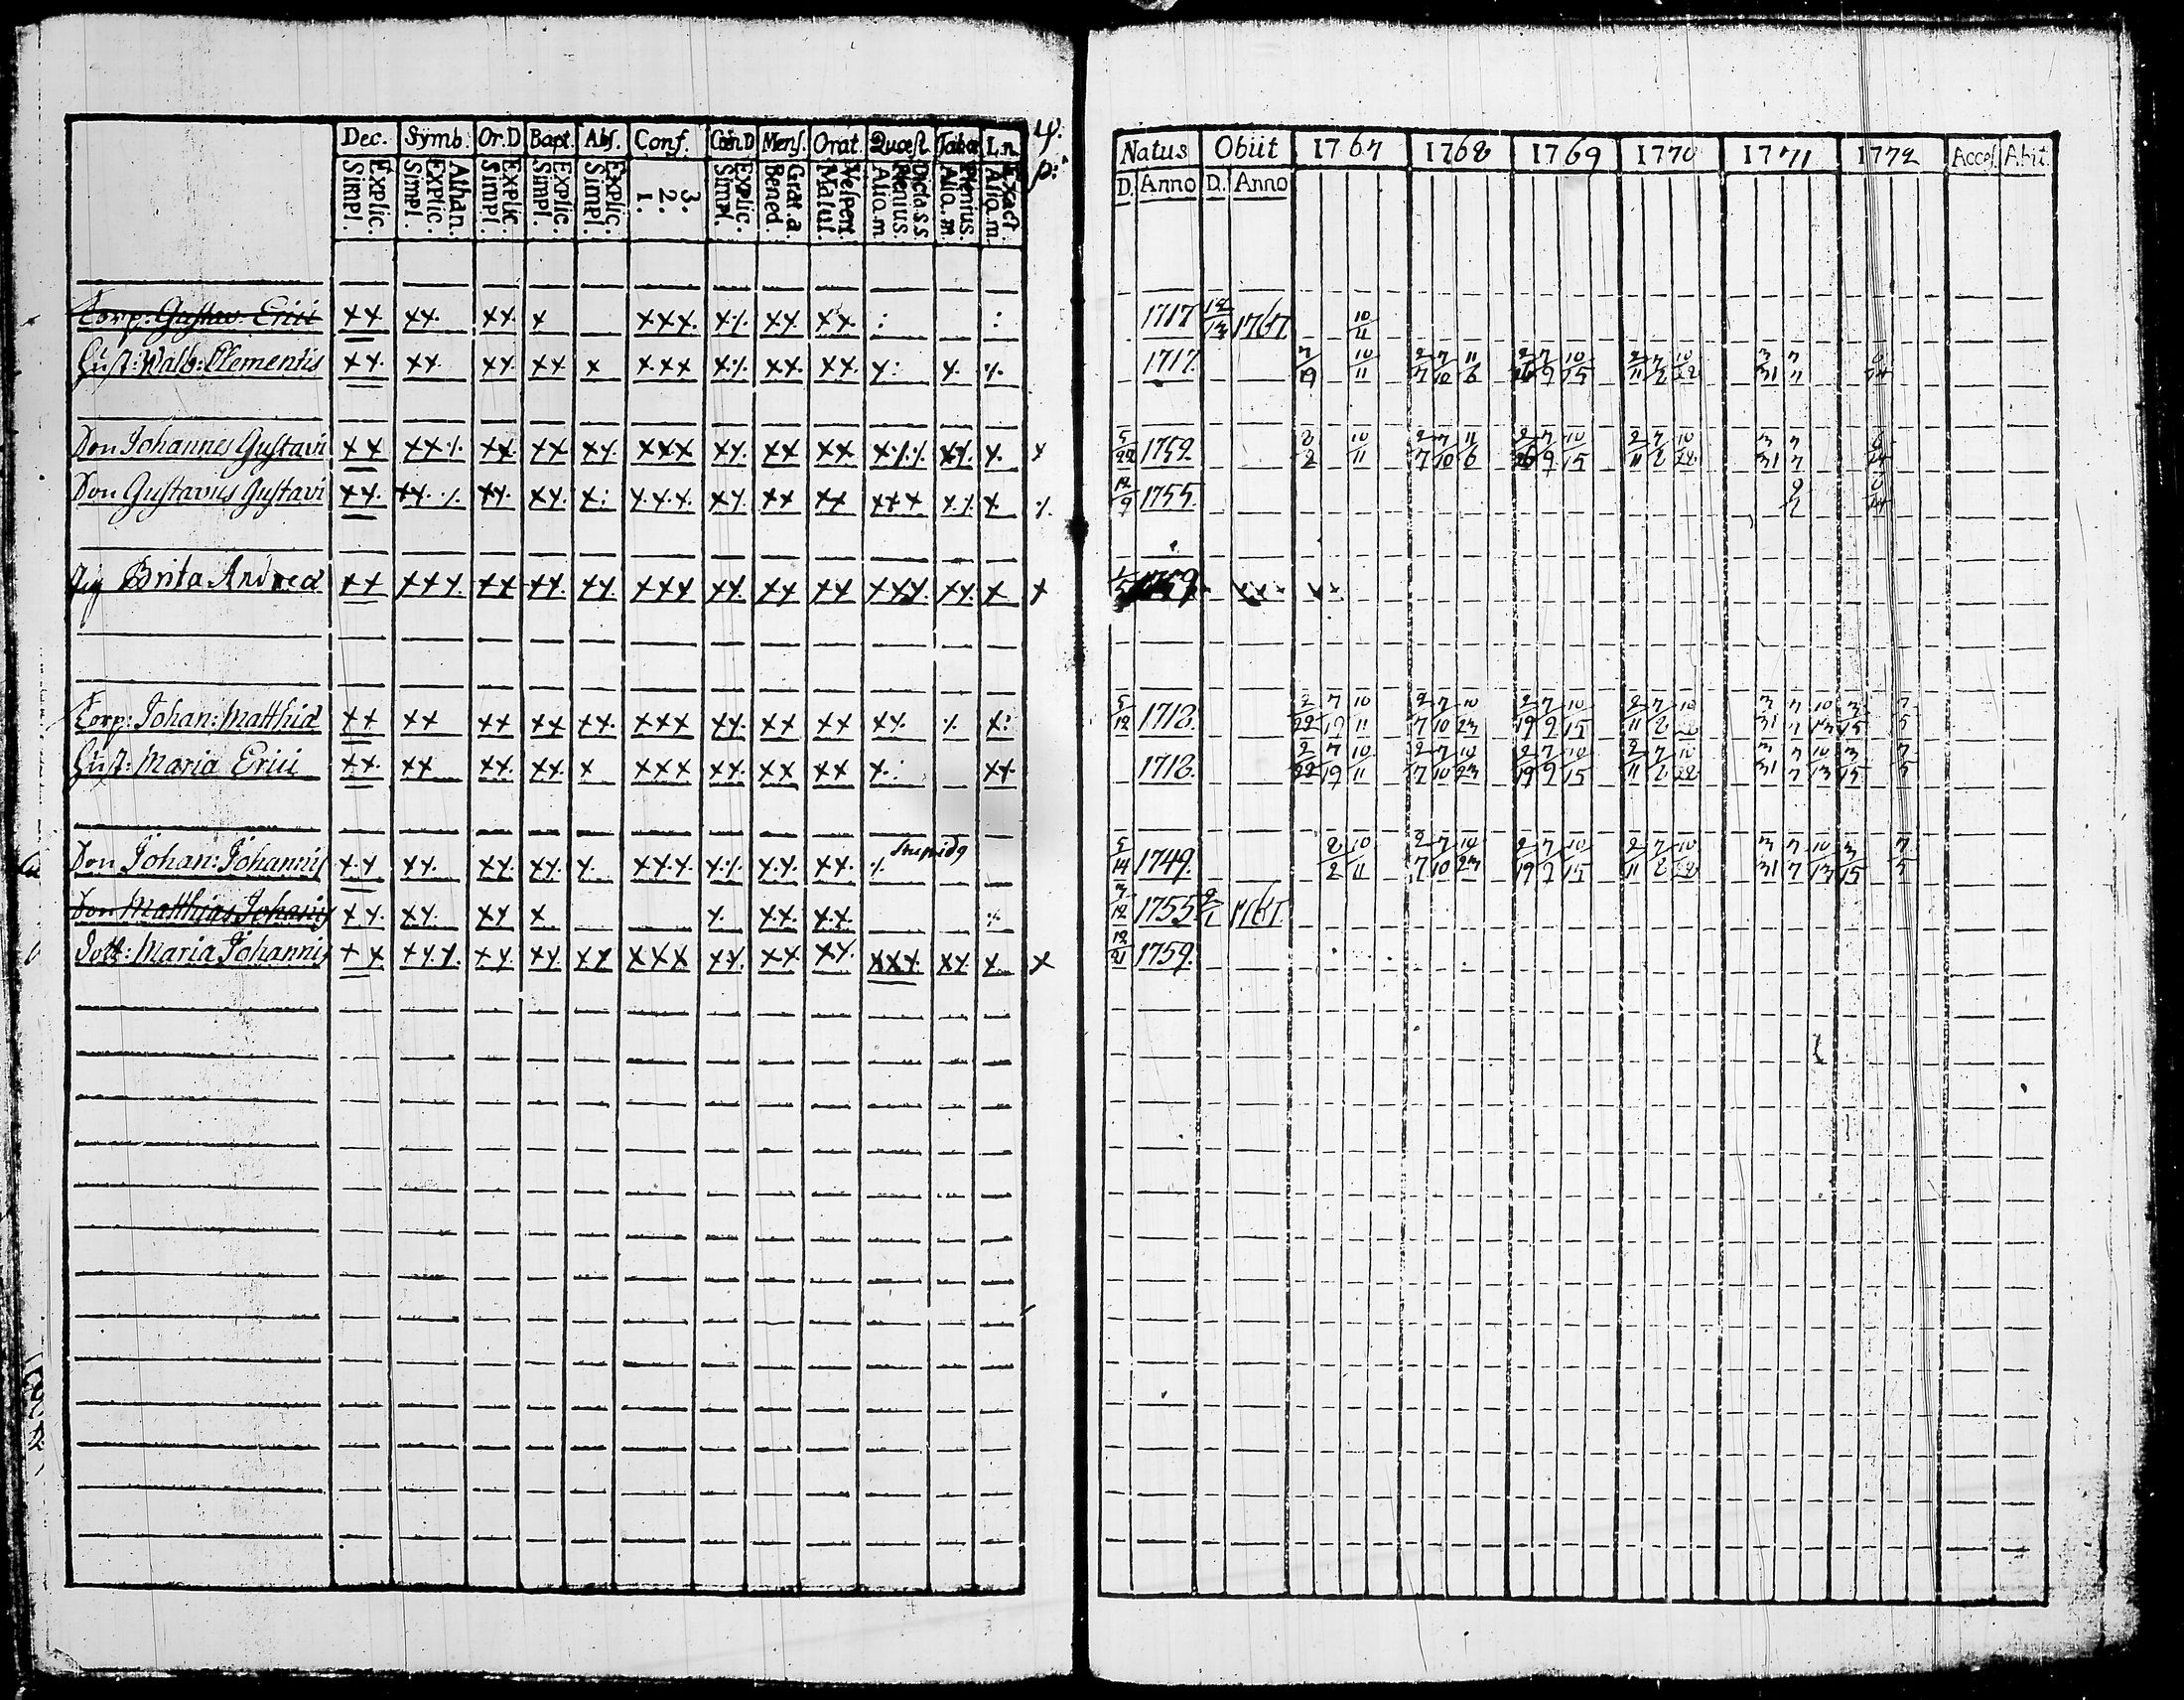 Dec. Symb. Or.D Bapt. Abs. Conf. Cœn.D Mens. Orat. Quæst. L.n. 4.
Explic. Simpl. Athan. Explic. Simpl. Explic. Simpl. Explic. Simpl. Explic. Simpl. 3. 2. 1. Explic. Simpl. Grat.a. Bened. Vespert. Matut. Dicta.s.s. Plenius. Aliq.m. Plenius. Aliq.m. Exact. Aliq.m. p:
Corp: Gustav. Erici xx xx. xx x xxx. x⁒ xx xx. : :
Hust: Walb: Clementis xx. xx. xx xx x xxx x⁒ xx. xx. x: x. ⁒
Son Johannes Gustavi xx xx⁒ xx. xx xx. xxx xx. xx xx x⁒⁒ xx. x. x
Son Gustavus Gustavi xx. xx.⁒ xx. xx. x: x.x.x. xx. xx xx xxx x⁒ x. ⁒
Pig Brita Andreæ xx xxx. xx xx. xx. xxx xx. xx xx xxx. xx. x x
Corp: Johan: Matthiæ xx xx xx xx xx. xxx xx. xx xx xx. ⁒ x:
Hust: Maria Erici xx. xx xx. xx. x xxx xx. xx xx x.: xx.
Son Johan: Johannis x.x xx. xx. xx. x. xx.x. x⁒ x.x. xx. ⁒ stupidq
Son Matthias Johannis xx. xx. xx x x. xx. x.x. ⁒
Dott: Maria Johannis xx xxx. xx. xx. xx xxx xx. xx xx. xxx. xx. x. x
Natus Obiit 1767 1768 1769 1770 1771 1772 Acces. Abit.
D. Anno D. Anno
1717 12/13 1767 10/11
1717. 7/19 10/11 2/7 7/10 11/6 2/26 7/9 10/15 2/11 7/2 10/22 3/31 7/7
5/22 1752 2/2 10/11 2/7 7/10 11/6 2/26 7/9 10/15 2/11 7/2 10/22 3/31 7/7
12/9 1755.
1759
5/12 1718. 2/22 7/19 10/11 2/7 7/10 10/23 2/19 7/9 10/15 2/11 7/2 3/31 7/7 10/13 3/15 7/5
1718. 2/22 7/19 10/11 2/7 7/10 10/23 2/19 7/9 10/15 2/11 7/2 10/22 3/31 7/7 10/13 3/15 7/5
5/14 1749. 2/2 10/11 2/7 7/10 10/23 2/19 7/9 10/15 2/11 7/2 10/22 3/31 7/7 10/13 3/15 7/5
3/12 1755 2/1 1767.
12/21 1759.